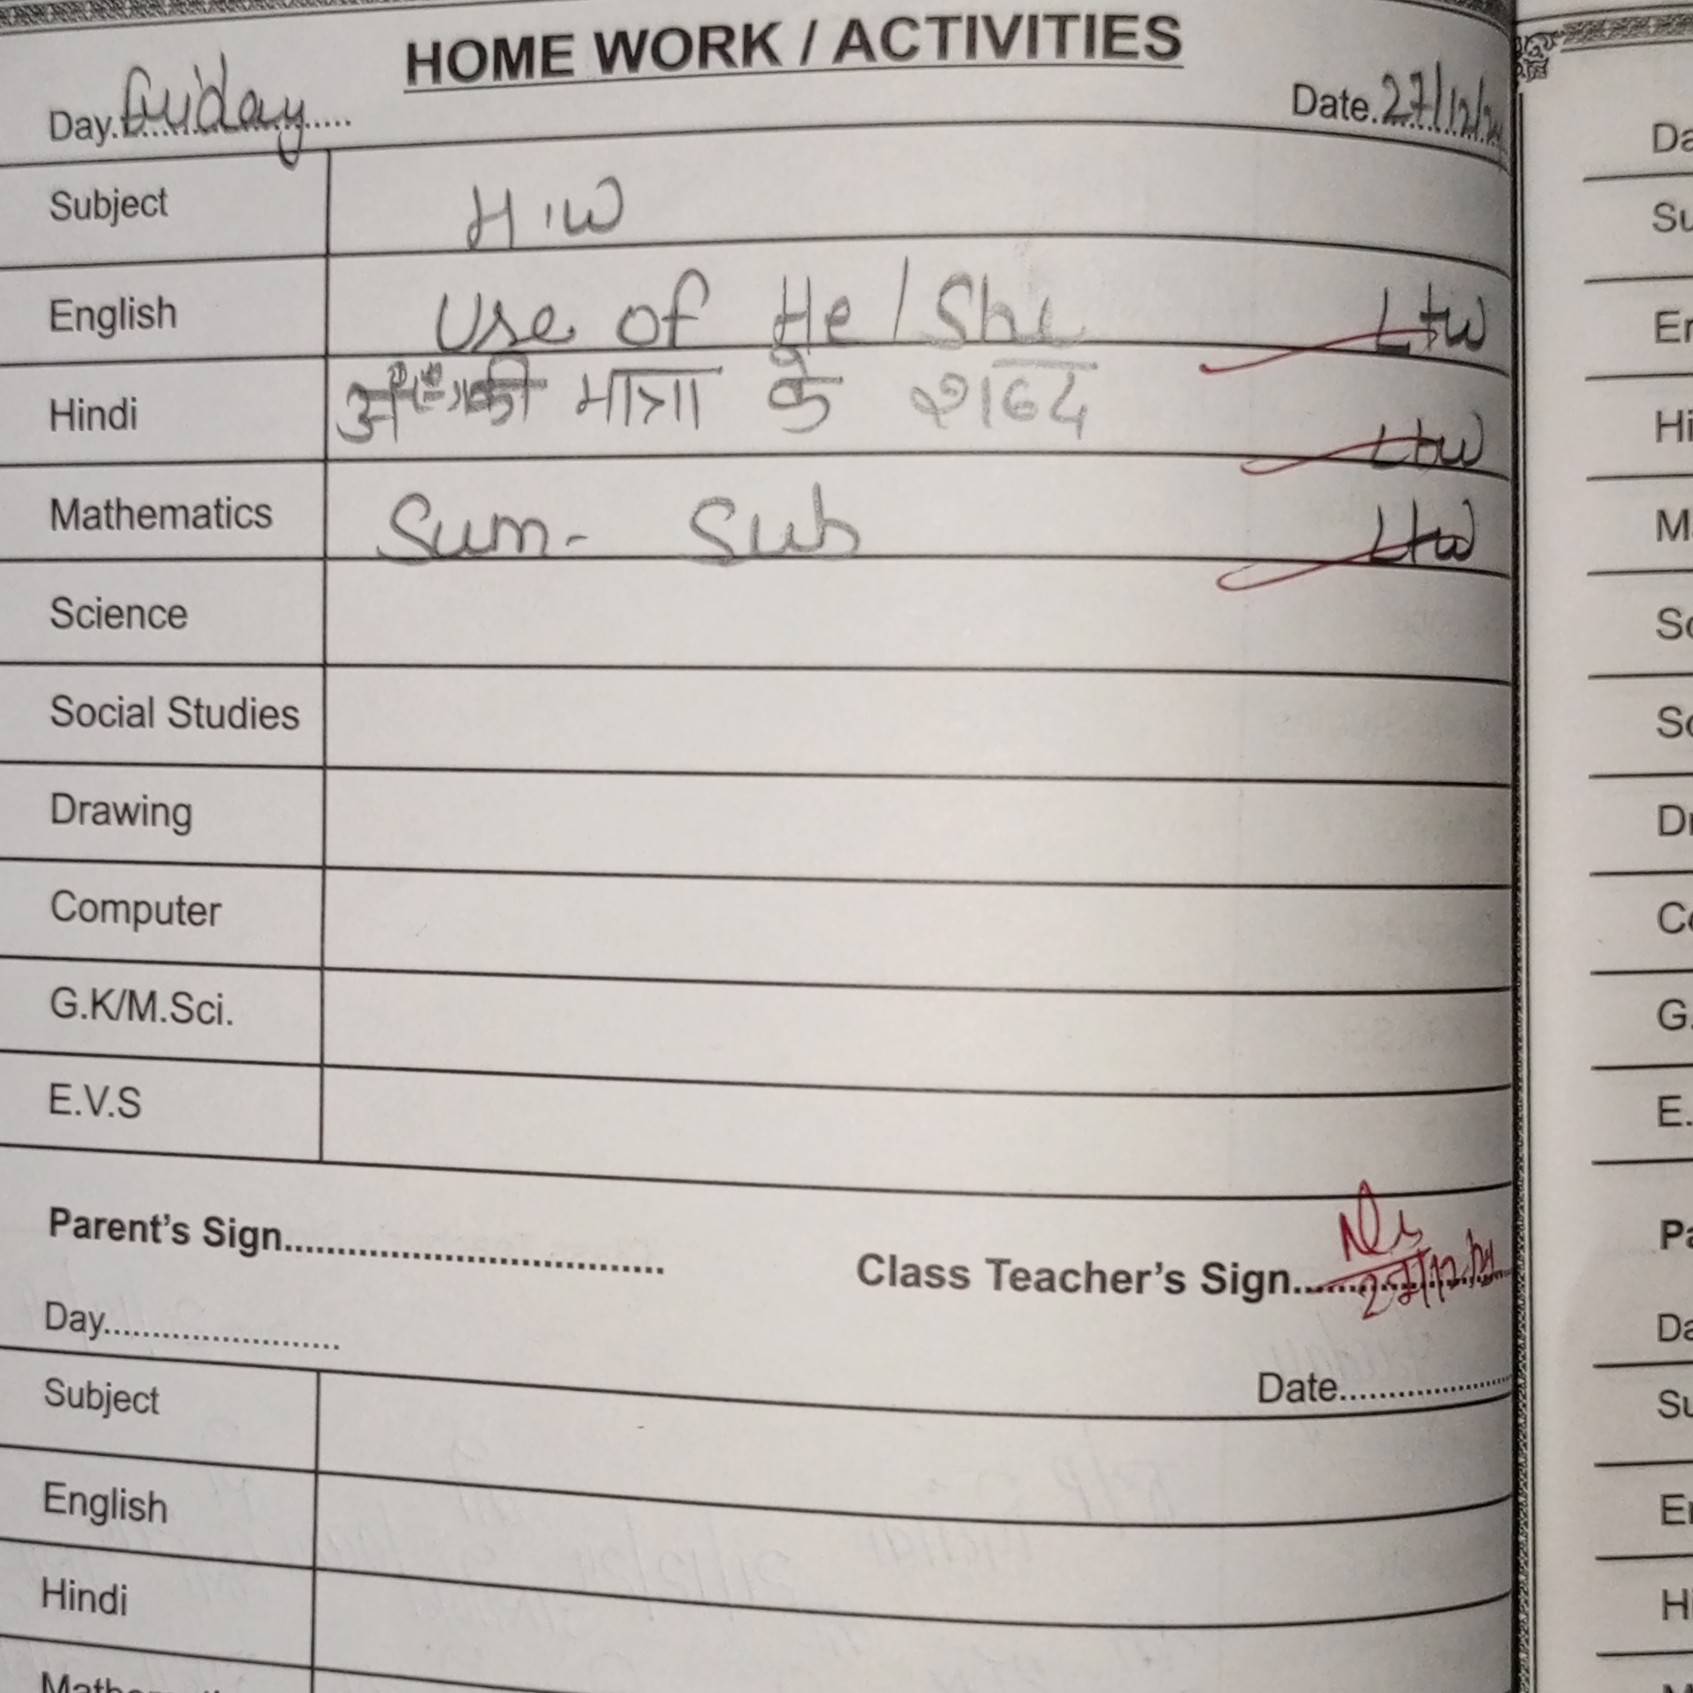 HOME WORK / ACTIVITIES
Day. Friday Date. 27/12/2
Subject H.W
English Use of He / She L+w
Hindi की मात्रा के शब्द L+w
Mathematics Sum- Sub L+w
Science
Social Studies
Drawing
Computer
G.K/M.Sci.
E.V.S
Parent's Sign
Class Teacher's Sign 27/12/24
Day
Date
Subject
English
Hindi
Da
Su
En
Hi
M
Sc
So
Dr
Co
G.
E.
Pa
Da
Su
En
Hi